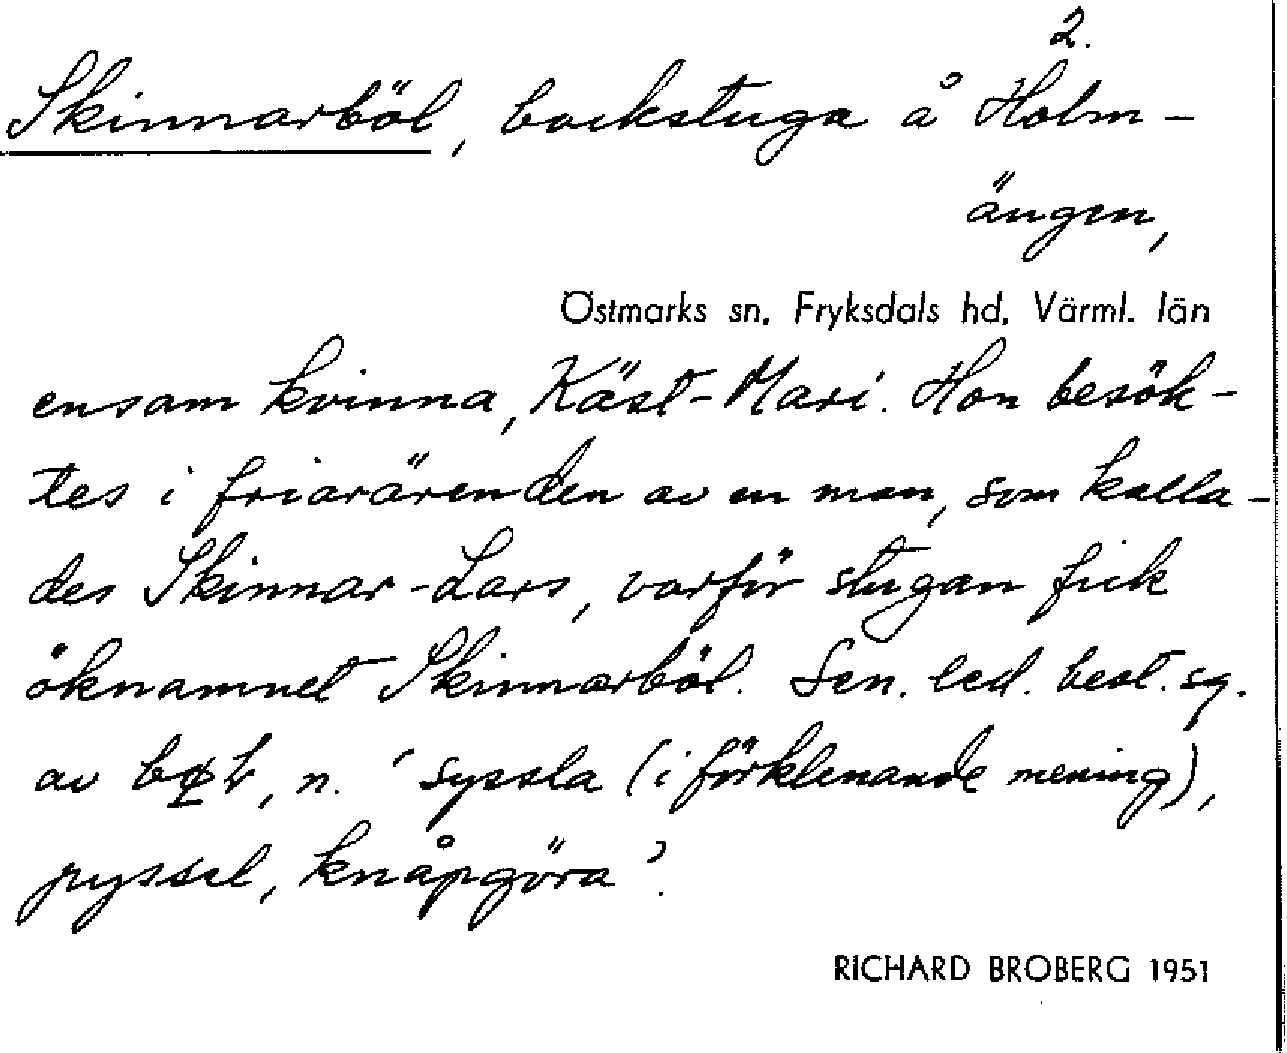 2.
Skinnarböl, backstuga å Holm-
ängen,
Östmarks sn, Fryksdals hd, Värml. län
ensam kvinna, Käst-Mari. Hon besök-
tes i friarärenden av en man, som kalla-
des Skinnar-Lars, varför stugan fick
öknamnet Skinnarböl. Sen. led. best. sg.
av , n. ´syssla (i förklenande mening),
pyssel, knåpgöra’.
RICHARD BROBERG 1951